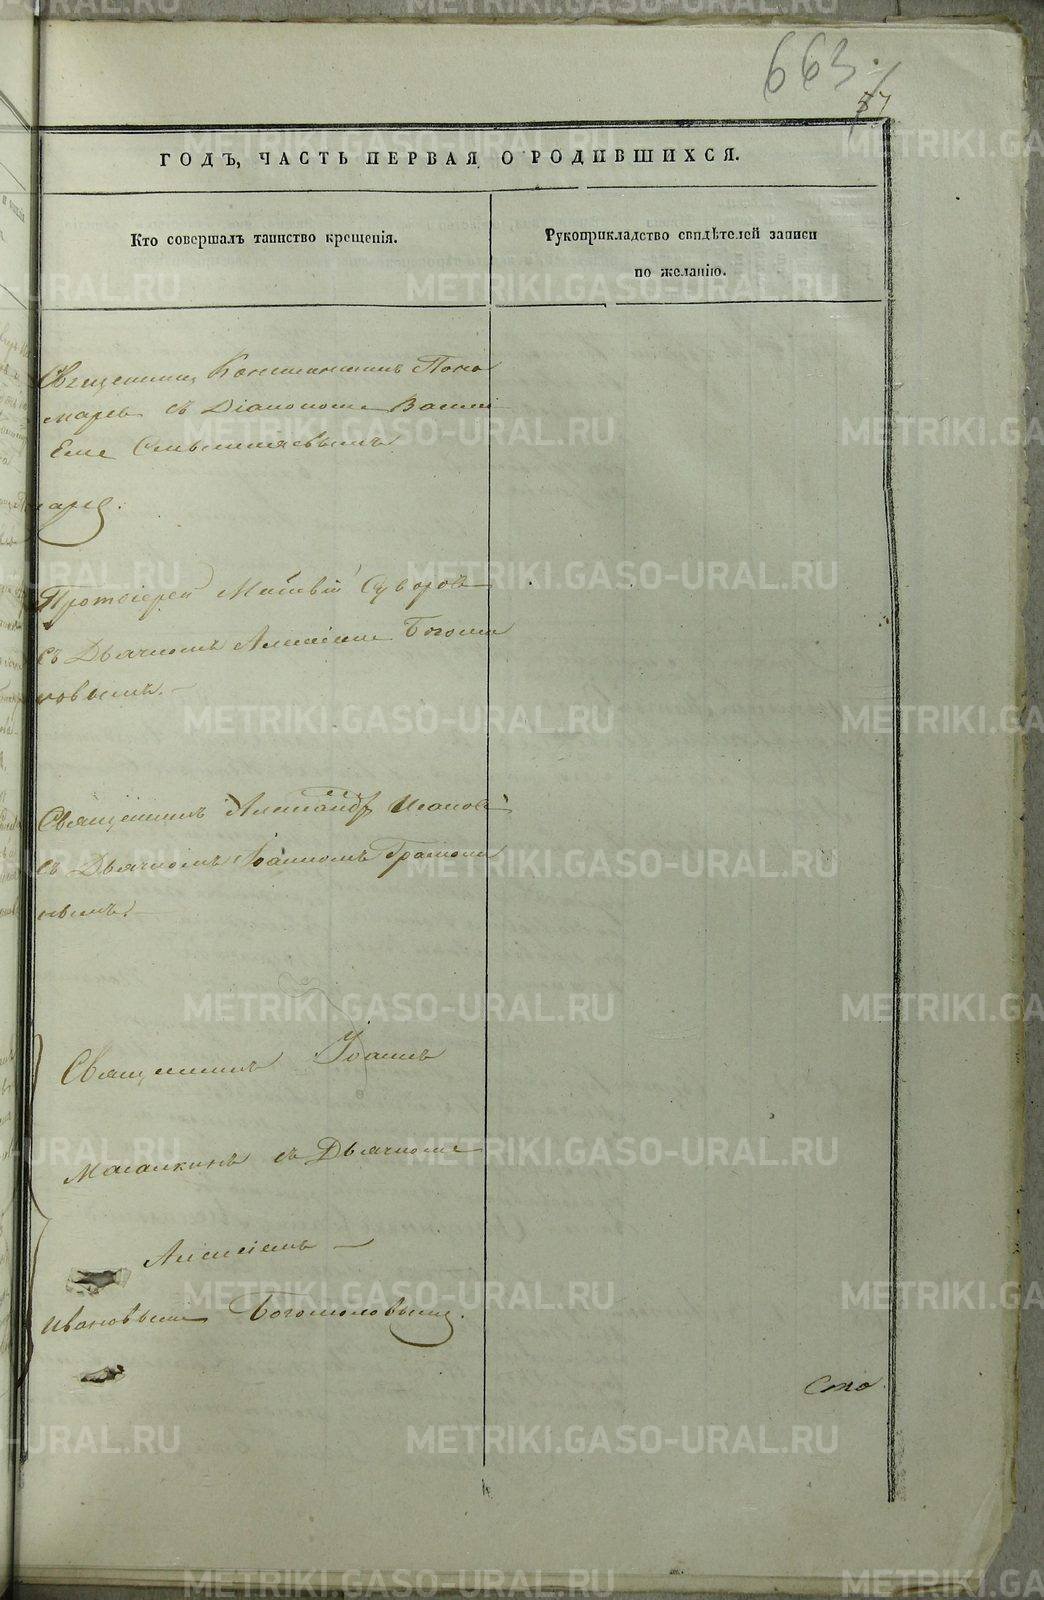 663
57
ГОДЪ, ЧАСТЬ ПЕРВАЯ О РОДИВШИХСЯ.
Кто совершалъ таинство крещенія.
Рукоприкладство свидѣтелей записи
по желанію.
Священникъ Константинъ Поно
маревъ съ Діакономъ Васили
емъ Смышляевымъ
Протоіерей Матѳвій Суворовъ
съ Дьячкомъ Алексіемъ Богомо
ловымъ.
Священникъ Александръ Иоанов
съ Дьячкомъ Іоанномъ
нымъ.
Священникъ Іоаннъ
Масалкинъ съ Дьячкомъ
Алексіемъ
Ивановымъ Богомоловымъ.
Сто
METRIKI.GASO-URAL.RU